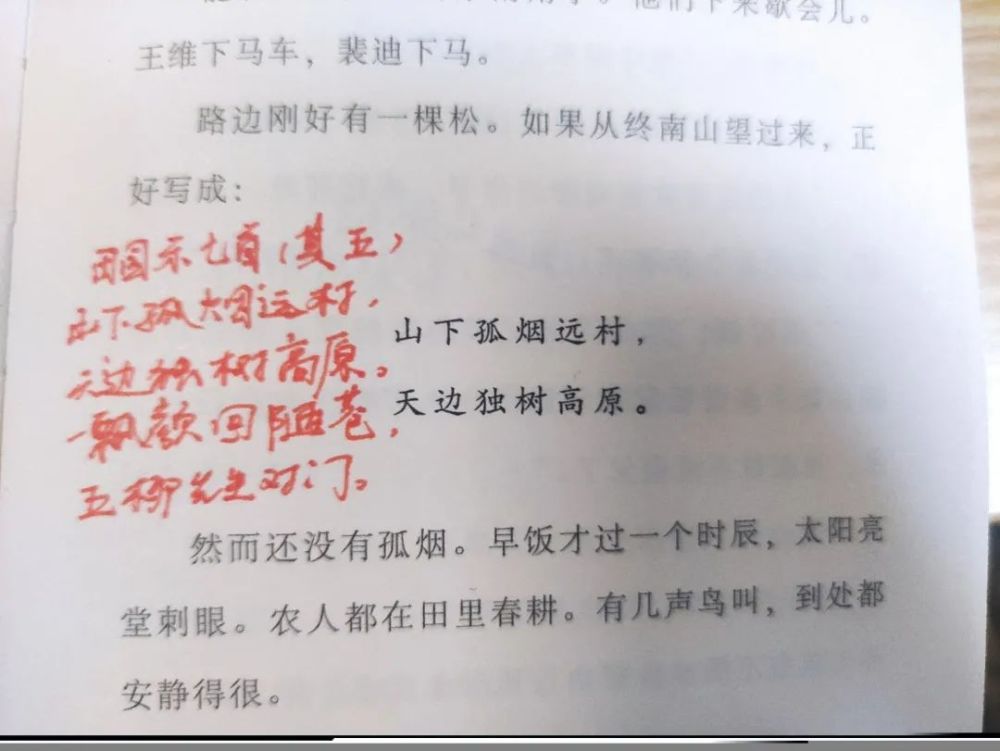 他们下来歇会儿。
王维下马车，裴迪下马。
路边刚好有一棵松。如果从终南山望过来，正
好写成：
田园乐七首（其五）
山下孤烟远村，
天边独树高原。
一瓢颜回陋巷，
五柳先生对门。
山下孤烟远村，
天边独树高原。
然而还没有孤烟。早饭才过一个时辰，太阳亮
堂刺眼。农人都在田里春耕。有几声鸟叫，到处都
安静得很。